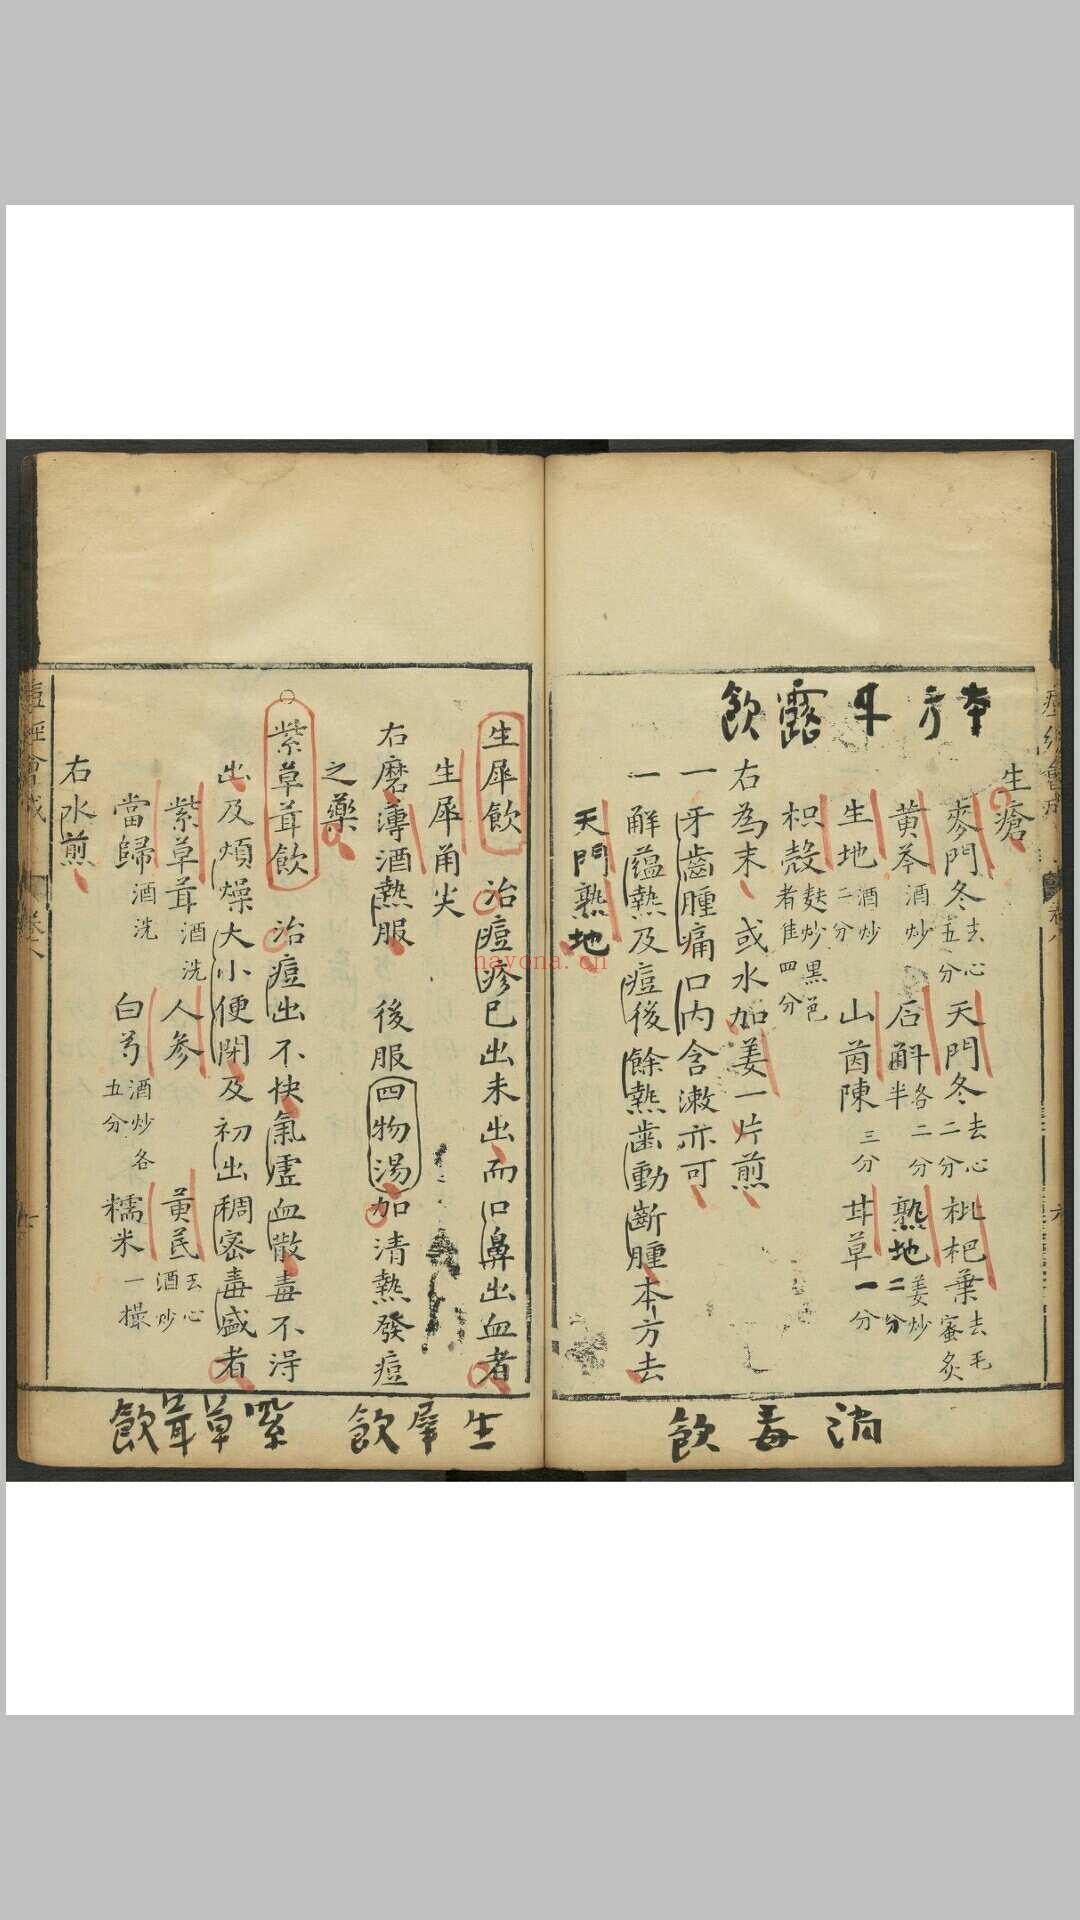 本方甘露飲
生瘡
麥門冬去心五分 天門冬去心二分 枇杷葉去毛蜜炙
黄芩酒炒 石斛各二分半 熟地姜炒二分
生地酒炒二分 山茵陳三分 甘草一分
枳殼麩炒黑色者佳四分
右為末或水加姜一片煎
一牙齒腫痛口内含漱亦可
一解蘊熱及痘後餘熱齒動齗腫本方去
天門熟地
消毒飲
生犀飲 治痘疹已出未出而口鼻出血者
生犀角尖
右磨薄酒熱服 後服四物湯加清熱發痘
之藥
紫草茸飲 治痘出不快氣虛血散毒不得
出及煩燥大小便閉及初出稠密毒盛者
紫草茸酒洗 人参 黄芪去心酒炒
當歸酒洗 白芍酒炒各五分 糯米一撮
右水煎
生犀飲
紫草茸飲
nayona.cn